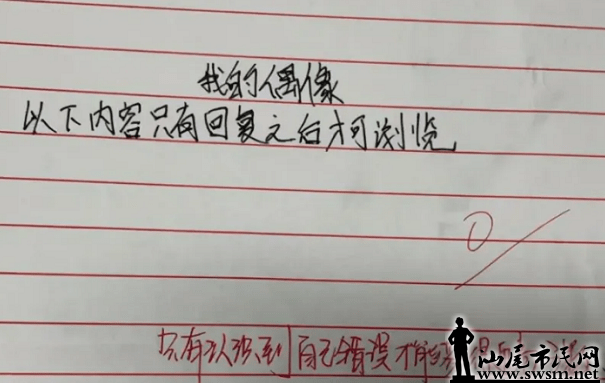 我的偶像
以下内容只有回复之后才可浏览
0
只有认识到自己错误才能
汕尾市民网
www.swsm.net